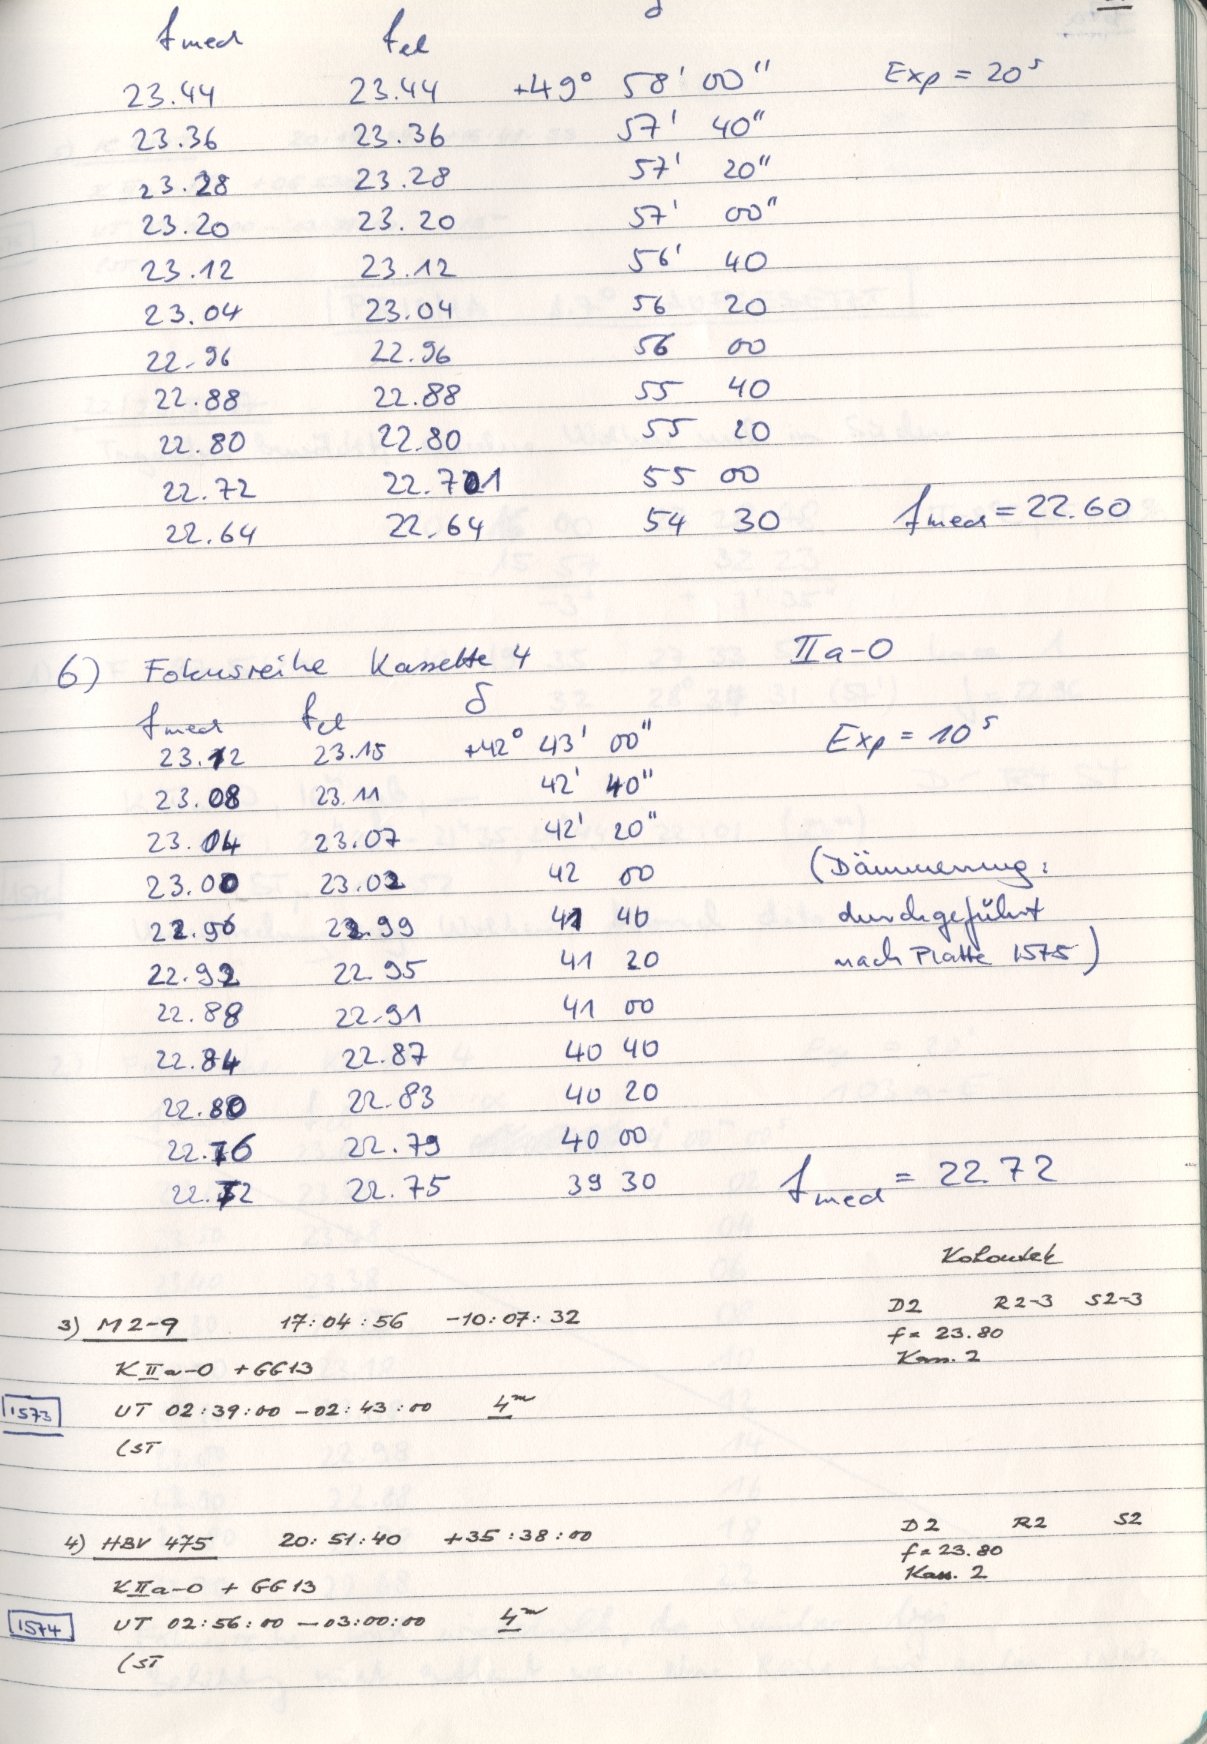 fmed fel δ
23.44 23.44 +49° 58' 00" Exp = 20ˢ
23.36 23.36 57' 40"
23.28 23.28 57' 20"
23.20 23.20 57' 00"
23.12 23.12 56' 40
23.04 23.04 56 20
22.96 22.96 56 00
22.88 22.88 55 40
22.80 22.80 55 20
22.72 22.71 55 00
22.64 22.64 54 30 fmed = 22.60
6) Fokusreihe Kassette 4 IIa-O
fmed fel δ
23.12 23.15 +42° 43' 00" Exp = 10ˢ
23.08 23.11 42' 40"
23.04 23.07 42' 20"
23.00 23.02 42 00 (Dämmerung:
22.96 22.99 41 40 durchgeführt
22.92 22.95 41 20 nach Platte 1575)
22.88 22.91 41 00
22.84 22.87 40 40
22.80 22.83 40 20
22.76 22.79 40 00
22.72 22.75 39 30 fmed = 22.72
Kohoutek
3) M2-9 17:04:56 -10:07:32 D2 R2-3 S2-3
f = 23.80
K IIa-O + GG13 Kass. 2
1573 UT 02:39:00 - 02:43:00 4ᵐ
(ST
4) HBV 475 20:51:40 +35:38:00 D2 R2 S2
f = 23.80
K IIa-O + GG13 Kass. 2
1574 UT 02:56:00 - 03:00:00 4ᵐ
(ST